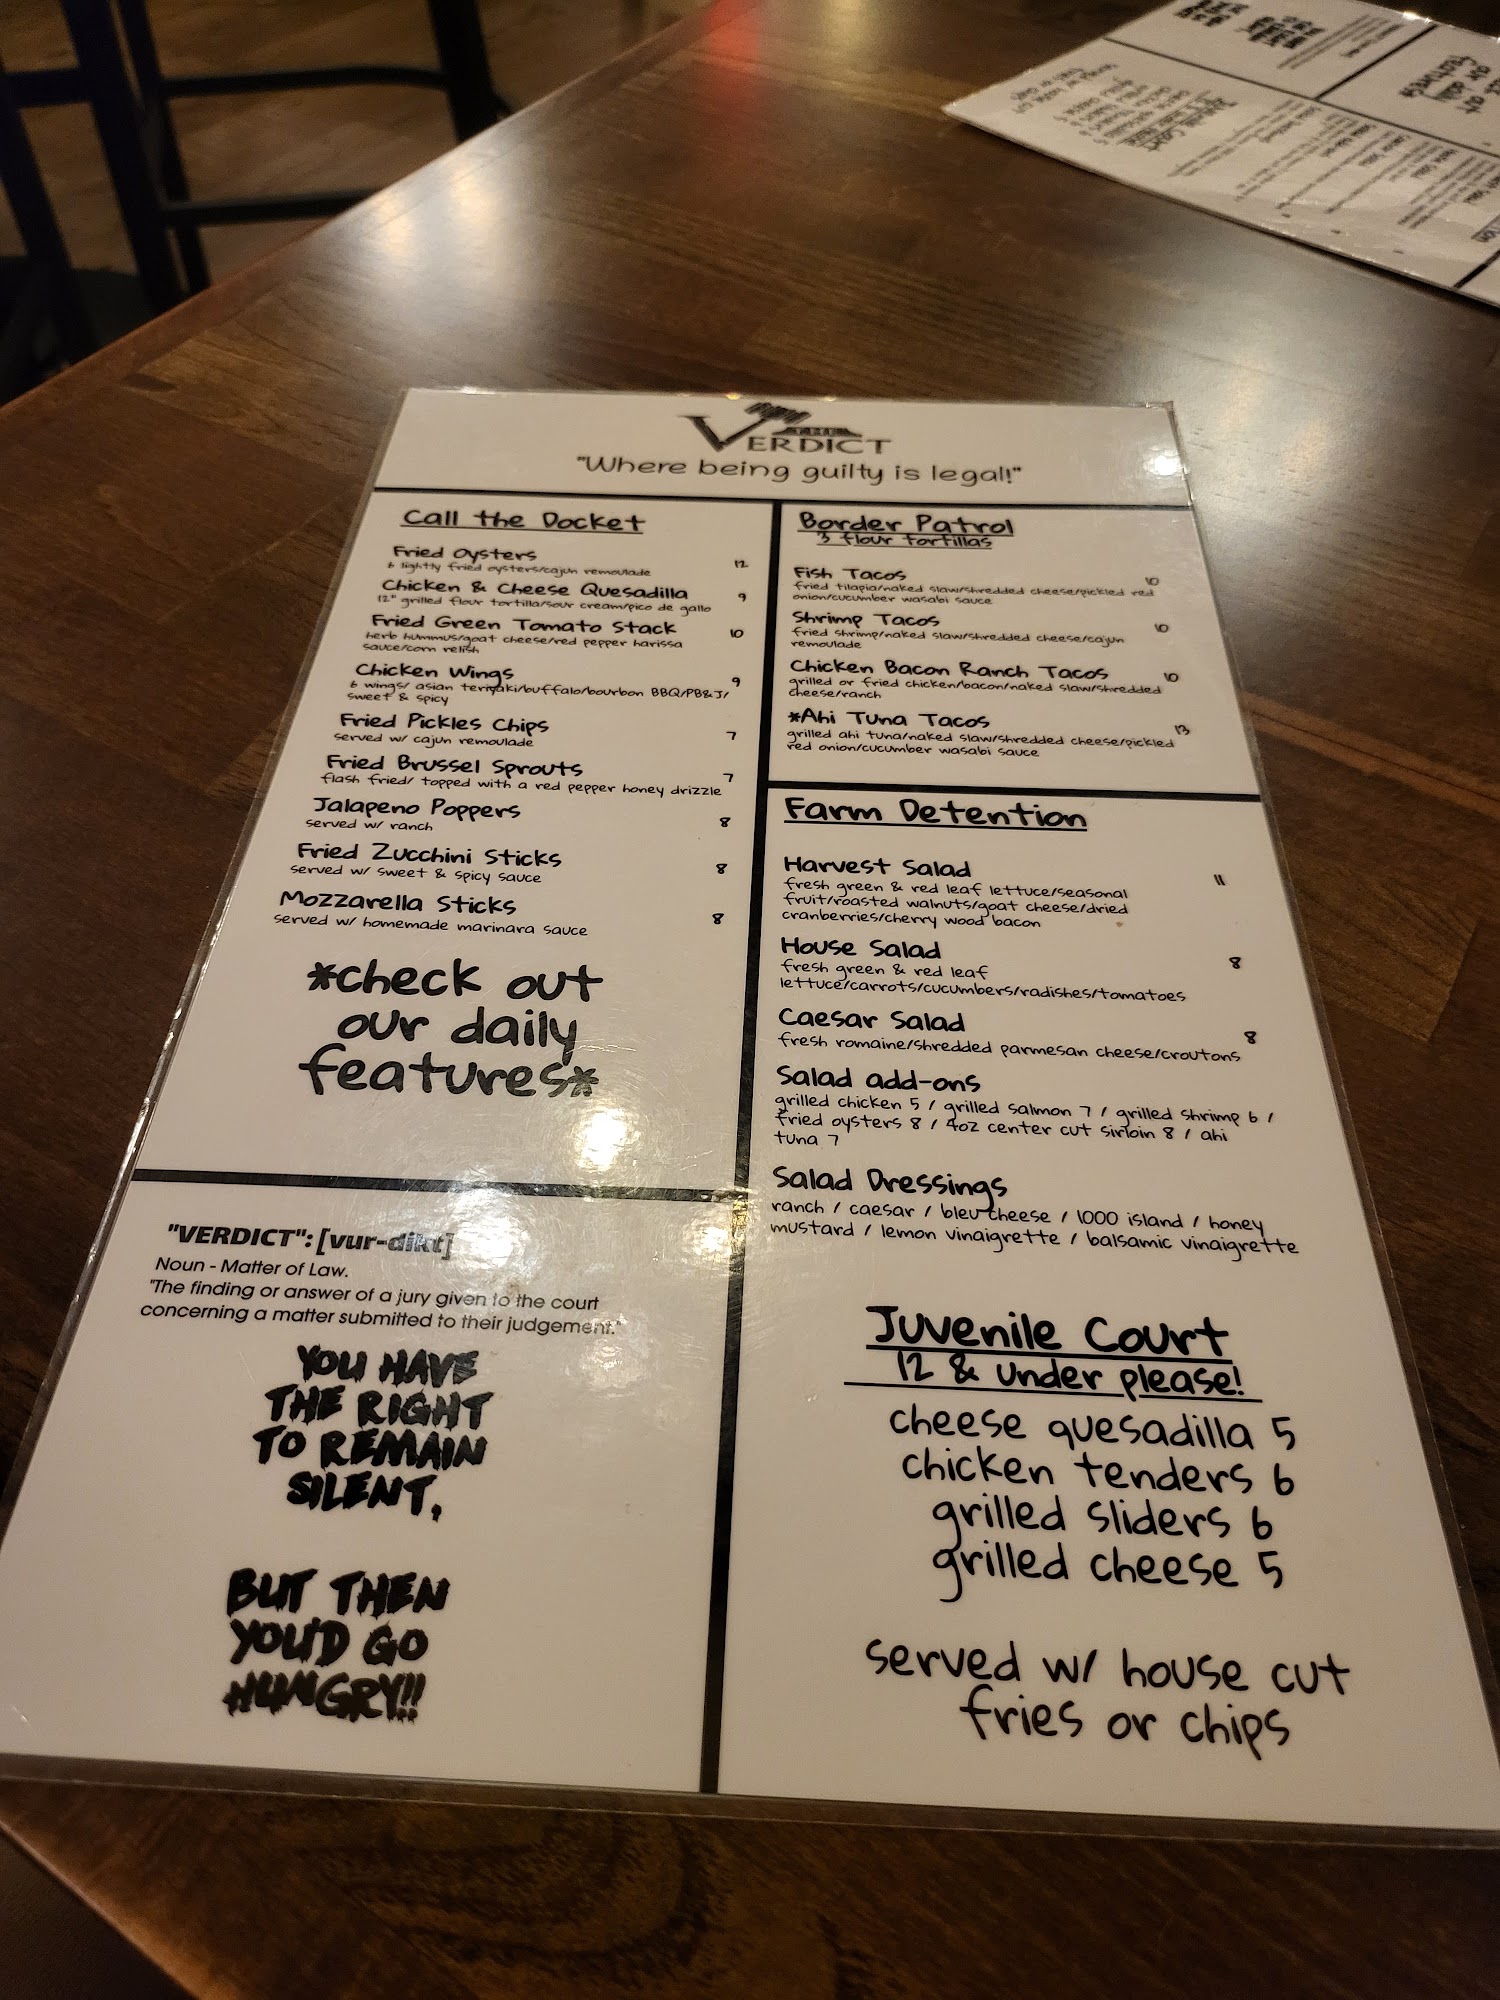 THE
VERDICT
"Where being guilty is legal!"
Call the Docket
Fried Oysters 12
6 lightly fried oysters/cajun remoulade
Chicken & Cheese Quesadilla 9
12" grilled flour tortilla/sour cream/pico de gallo
Fried Green Tomato Stack 10
herb hummus/goat cheese/red pepper harissa
sauce/corn relish
Chicken Wings 9
6 wings/ asian teriyaki/buffalo/bourbon BBQ/PB&J/
sweet & spicy
Fried Pickles Chips 7
served w/ cajun remoulade
Fried Brussel Sprouts 7
flash fried/ topped with a red pepper honey drizzle
Jalapeno Poppers 8
served w/ ranch
Fried Zucchini Sticks 8
served w/ sweet & spicy sauce
Mozzarella Sticks 8
served w/ homemade marinara sauce
*check out
our daily
features*
"VERDICT": [vur-dikt]
Noun - Matter of Law.
"The finding or answer of a jury given to the court
concerning a matter submitted to their judgement."
YOU HAVE
THE RIGHT
TO REMAIN
SILENT,
BUT THEN
YOU'D GO
HUNGRY!!
Border Patrol
3 flour tortillas
Fish Tacos 10
fried tilapia/naked slaw/shredded cheese/pickled red
onion/cucumber wasabi sauce
Shrimp Tacos 10
fried shrimp/naked slaw/shredded cheese/cajun
remoulade
Chicken Bacon Ranch Tacos 10
grilled or fried chicken/bacon/naked slaw/shredded
cheese/ranch
*Ahi Tuna Tacos 13
grilled ahi tuna/naked slaw/shredded cheese/pickled
red onion/cucumber wasabi sauce
Farm Detention
Harvest Salad 11
fresh green & red leaf lettuce/seasonal
fruit/roasted walnuts/goat cheese/dried
cranberries/cherry wood bacon
House Salad 8
fresh green & red leaf
lettuce/carrots/cucumbers/radishes/tomatoes
Caesar Salad 8
fresh romaine/shredded parmesan cheese/croutons
Salad add-ons
grilled chicken 5 / grilled salmon 7 / grilled shrimp 6 /
fried oysters 8 / 4oz center cut sirloin 8 / ahi
tuna 7
Salad Dressings
ranch / caesar / bleu cheese / 1000 island / honey
mustard / lemon vinaigrette / balsamic vinaigrette
Juvenile Court
12 & under please!
cheese quesadilla 5
chicken tenders 6
grilled sliders 6
grilled cheese 5
served w/ house cut
fries or chips